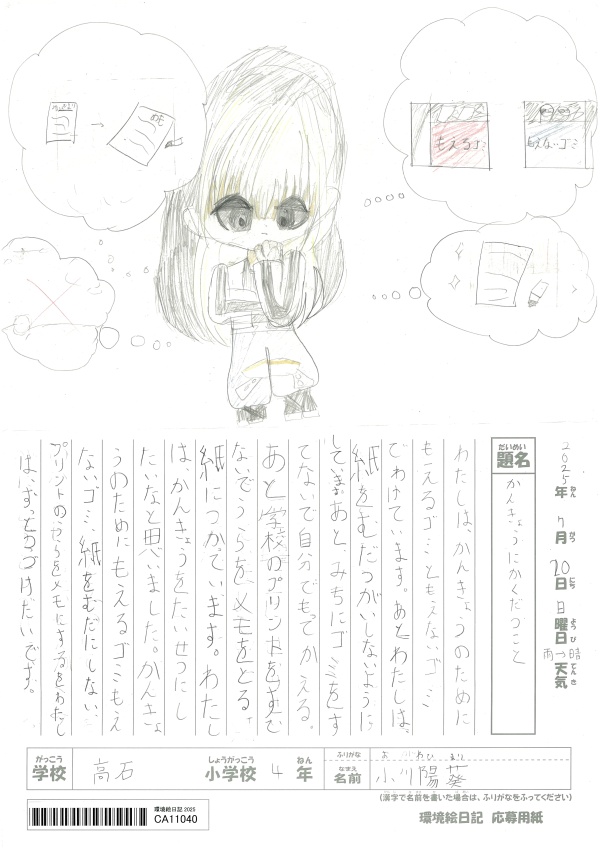 めも
もえるゴミ
もえないゴミ
2025年 7月 20日 日曜日 雨のち晴 天気
ねん
がつ
にち
ようび
てんき
だいめい
題名
かんきょうにかくだつこと
わたしは、かんきょうのために
もえるゴミともえないゴミ
でわけています。あとわたしは、
紙をむだづかいしないように
しています。あと、みちにゴミをす
てないで自分でもってかえる。
あと学校のプリントをすて
ないでうらをメモをとる、
紙につかています。わたし
は、かんきょうをたいせつにし
たいなと思いました。かんきょ
うのためにもえるゴミもえ
ないゴミ、紙をむだにしない、
プリントのうらをメモにするをわたし
は、ずっとつづけたいです。
がっこう
学校
高石
しょうがっこう
小学校
4
ねん
年
ふりがな
お がわ ひ まり
なまえ
名前
小川陽葵
(漢字で名前を書いた場合は、ふりがなをふってください)
環境絵日記 2025
CA11040
環境絵日記 応募用紙